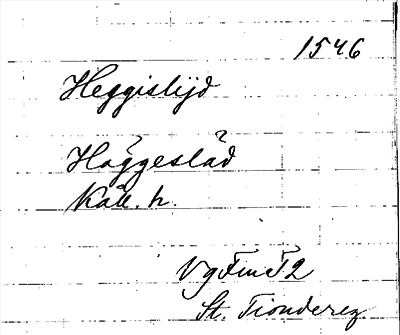 1546
Heggislijd
Häggesläd
Kåll. h.
Vg Fm T2
St. Tiondereg